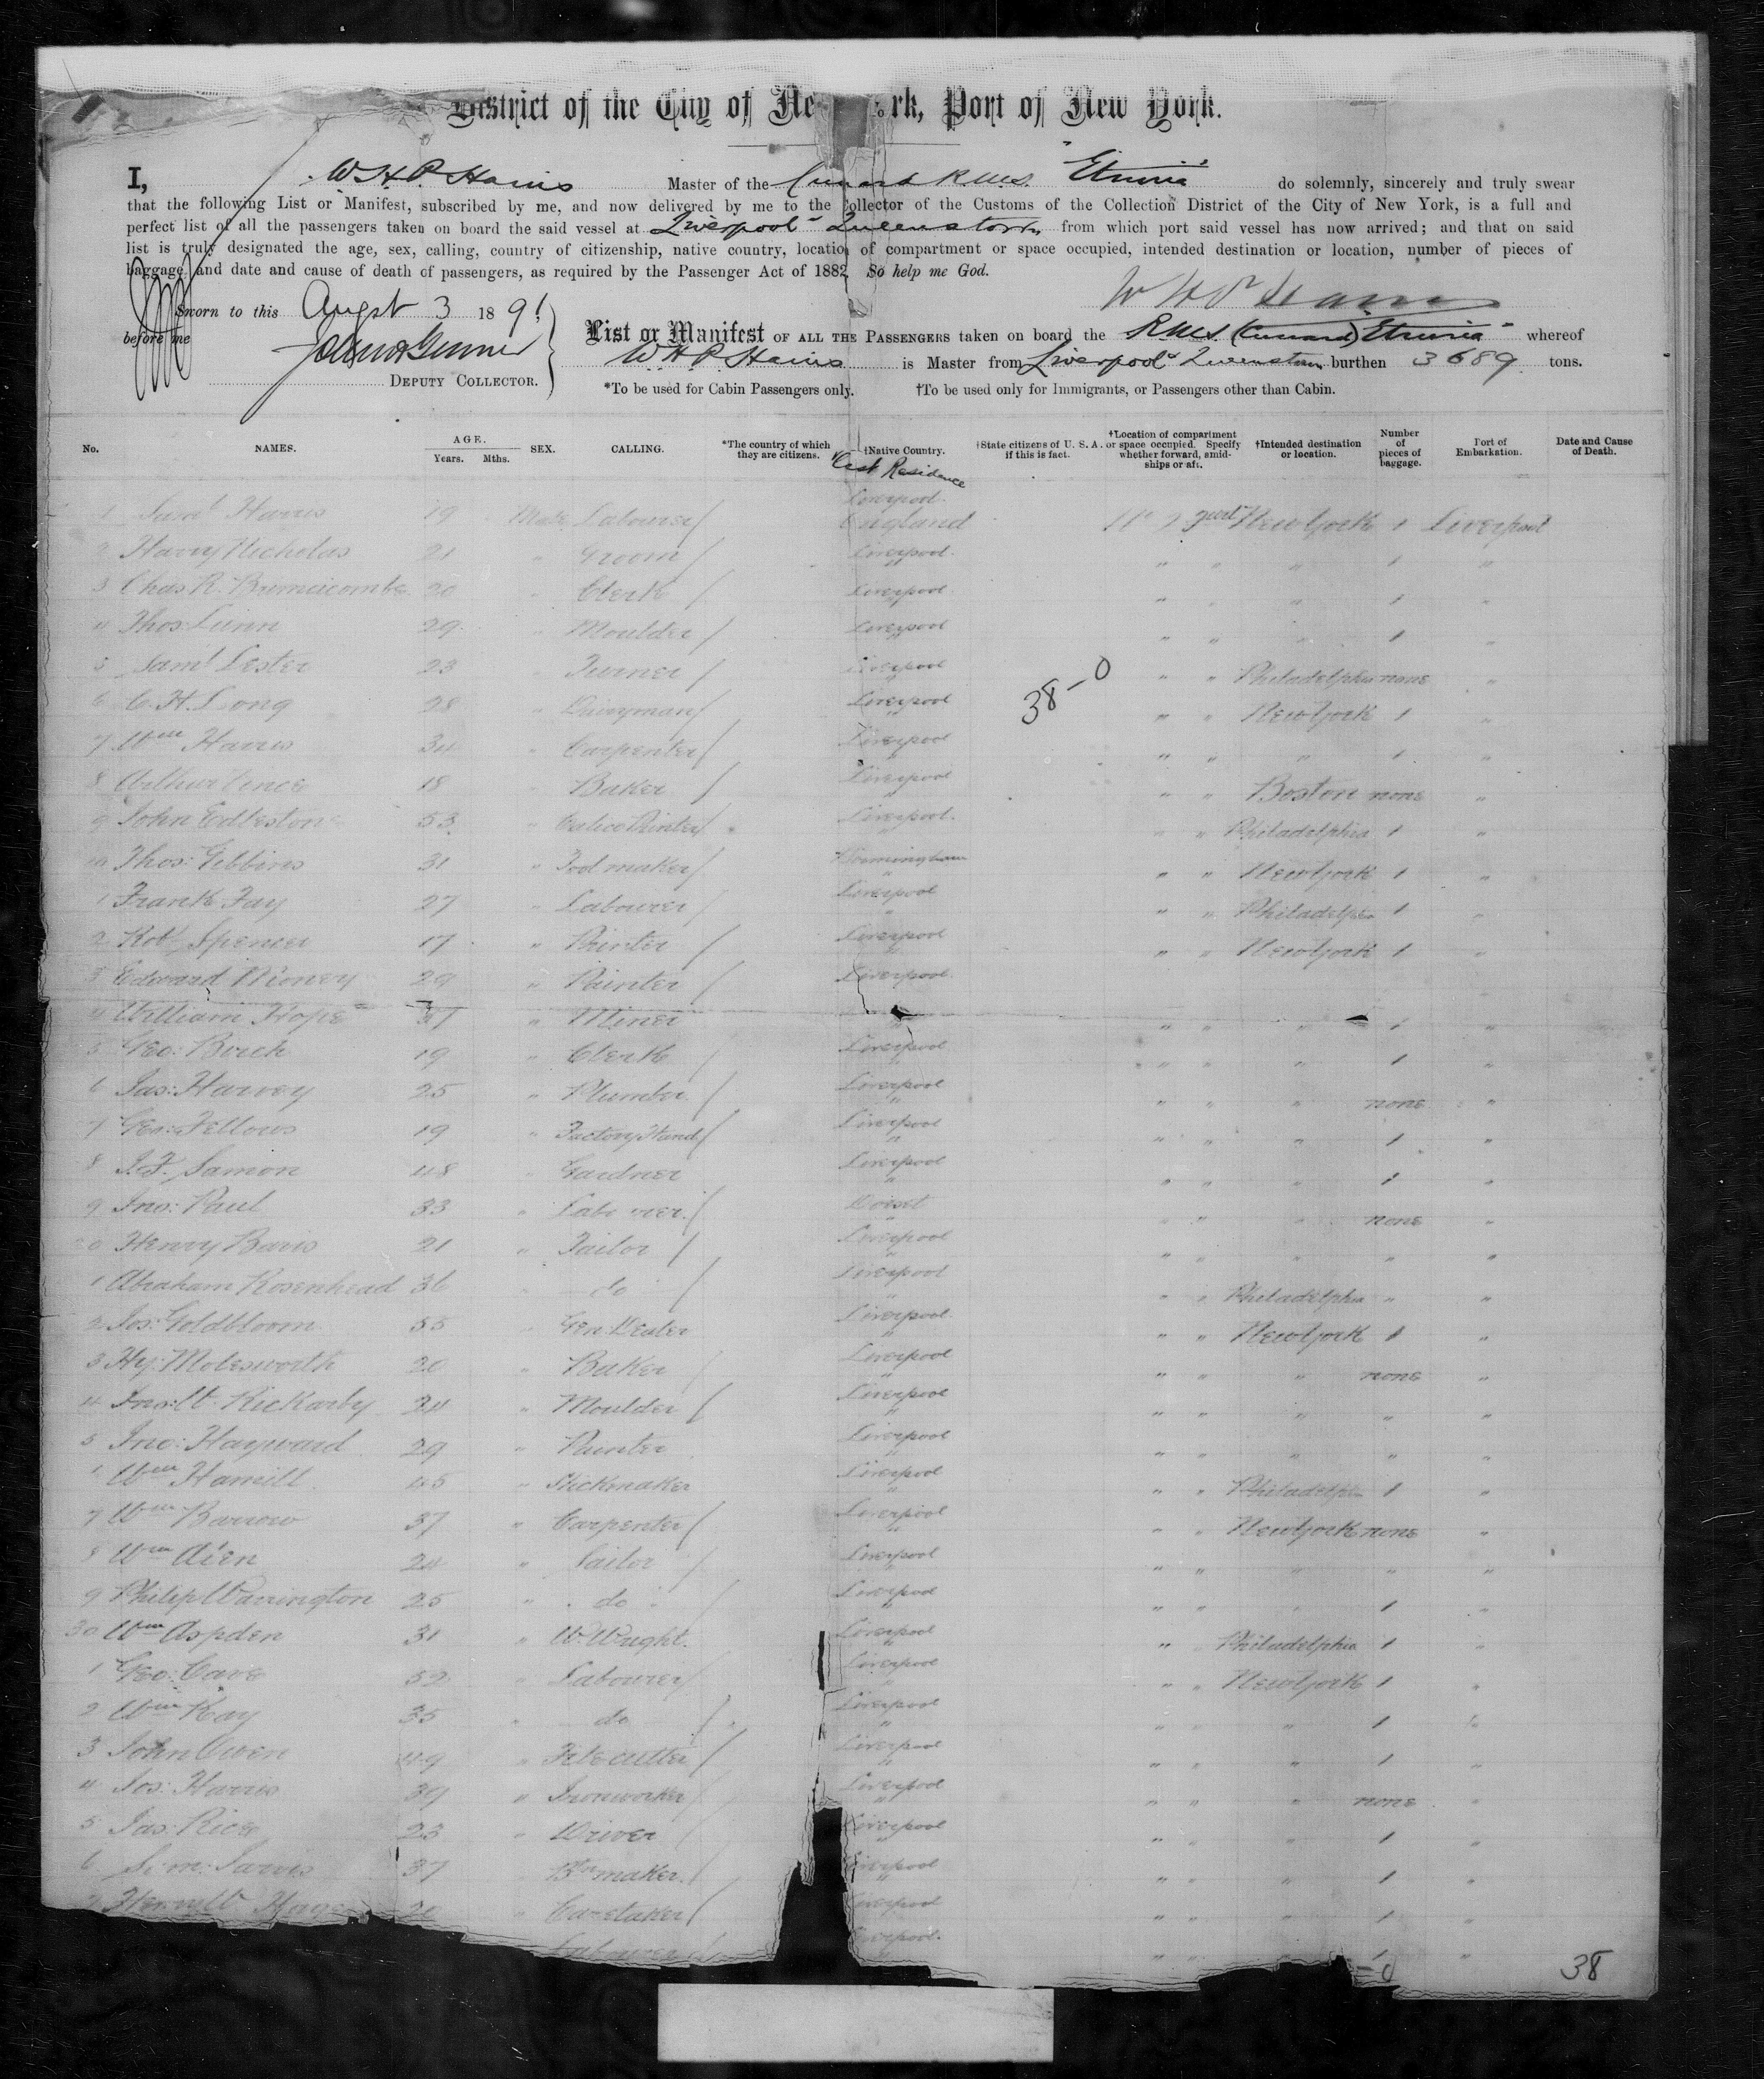 District of the City of Ne rk, Port of New York.
I, W.H.P. Hains Master of the Cunard R.M.S. "Etruria" do solemnly, sincerely and truly swear
that the following List or Manifest, subscribed by me, and now delivered by me to the Collector of the Customs of the Collection District of the City of New York, is a full and
perfect list of all the passengers taken on board the said vessel at Liverpool & Queenstown from which port said vessel has now arrived; and that on said
list is truly designated the age, sex, calling, country of citizenship, native country, location of compartment or space occupied, intended destination or location, number of pieces of
baggage, and date and cause of death of passengers, as required by the Passenger Act of 1882 So help me God.
W H P Hains
Sworn to this Augst 3 1891
before me
DEPUTY COLLECTOR.
List or Manifest OF ALL THE PASSENGERS taken on board the R.M.S. (Cunard) Etruria" whereof
W.H.P. Hains is Master from Liverpool & Queenstown burthen 3689 tons.
*To be used for Cabin Passengers only. †To be used only for Immigrants, or Passengers other than Cabin.
No. NAMES. AGE. Years. Mths. SEX. CALLING. *The country of which they are citizens. †Native Country. †State citizens of U. S. A. if this is fact. †Location of compartment or space occupied. Specify whether forward, amidships or aft. †Intended destination or location. Number of pieces of baggage. Port of Embarkation. Date and Cause of Death.
Last Residence
1 Harris 19 Male Labourer Liverpool. England New York 1 Liverpool
2 Harry Nicholas 21 " Groom Liverpool. " " " " 1 "
3 Chas R. Brimicombe 20 " Clerk Liverpool. " " " " 1 "
4 Thos: Lunn 29 " Moulder Liverpool " " " " 1 "
5 Saml Lester 23 " Turner Liverpool " " " Philadelphia none "
6 C.H. Long 28 " Dairyman Liverpool " " " New York 1 "
38-0
7 Wm Harris 34 " Carpenter Liverpool " " " " 1 "
8 Arthur Vince 18 " Baker Liverpool " " " Boston none "
9 John Edleston 53 " Calico Printer Liverpool. " " " Philadelphia 1 "
10 Thos: Gibbins 31 " Toolmaker Birmingham " " " New York 1 "
1 Frank Fay 27 " Labourer Liverpool " " " Philadelphia 1 "
2 Robt Spencer 17 " Painter Liverpool " " " New York 1 "
3 Edward 29 " Painter Liverpool.
4 William Hope 37 " Miner " " " 1 "
5 Geo: Birch 19 " Clerk Liverpool " " " " 1 "
6 Jas: Harvey 25 " Plumber Liverpool " " " " none "
7 Geo: Fellows 19 " Factory Hand Liverpool " " " " 1 "
8 J.F. Samon 48 " Gardner Liverpool " " " " 1 "
9 Jno: Paul 33 " Labourer Dorset " " " " none "
20 Henry Baris 21 " Tailor Liverpool " " " " " "
1 Abraham Rosenhead 36 " do Liverpool " " " Philadelphia " "
2 Jos: Goldbloom 55 " Gen: Dealer Liverpool " " " New York 1 "
3 Hy: Molesworth 20 " Baker Liverpool " " " " none "
4 Jno: W. Rickarby 24 " Moulder Liverpool " " " " " "
5 Jno: Hayward 29 " Painter Liverpool " " " " " "
6 Wm Hamill 45 " Stickmaker Liverpool " " " Philadelphia 1 "
7 Wm Barrow 37 " Carpenter Liverpool " " " New York none "
8 Wm 24 " Liverpool " " " " " "
9 Philip Warrington 25 " do Liverpool " " " " 1 "
30 Wm Aspden 31 " W. Wright. Liverpool " " Philadelphia 1 "
1 Geo: Cave 52 " Labourer Liverpool " " " New York 1 "
2 Wm Kay 35 " do Liverpool " " " " 1 "
3 John Owen 49 " File cutter Liverpool " " " 1 "
4 Jos: Harris 39 " Ironworker Liverpool " " " " none "
5 Jas: Rice 23 " Driver Liverpool " " " 1 "
6 Sim: Jarvis 37 " maker Liverpool " " " " 1 "
7 Henry W. 20 " Caretaker Liverpool " " " 1 "
Labourer Liverpool. " " " " 1 "
-0 38